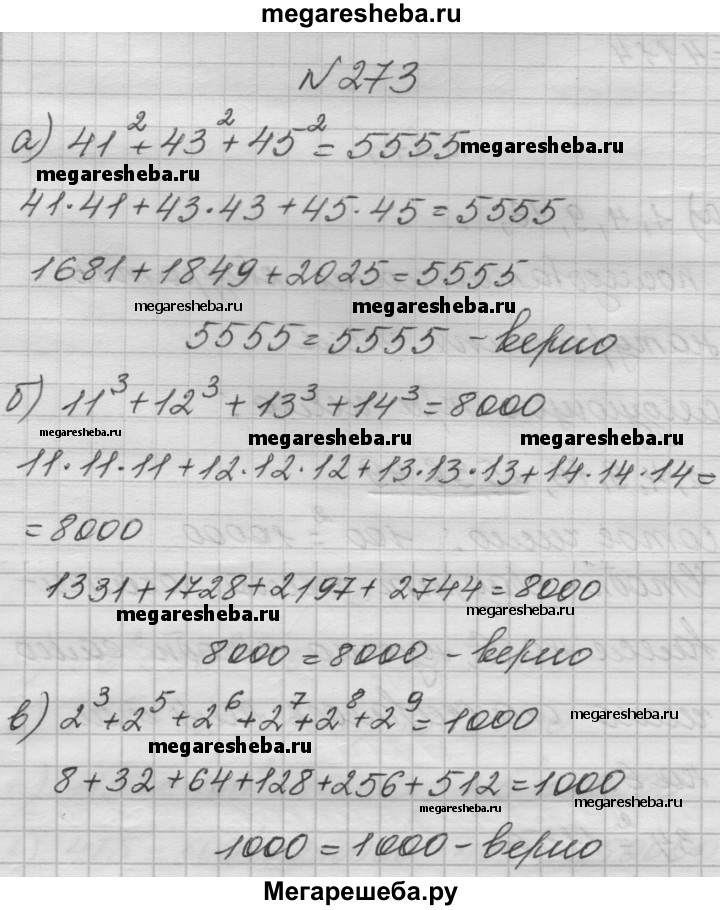 megaresheba.ru
№273
а) 41² + 43² + 45² = 5555 megaresheba.ru
megaresheba.ru
41·41+43·43+45·45=5555
1681+1849+2025=5555
megaresheba.ru megaresheba.ru
5555=5555 - верно
б) 11³+12³+13³+14³=8000
megaresheba.ru megaresheba.ru megaresheba.ru
11·11·11+12·12·12+13·13·13+14·14·14=
=8000
1331+1728+2197+2744=8000
megaresheba.ru megaresheba.ru
8000=8000 - верно
в) 2³+2⁵+2⁶+2⁷+2⁸+2⁹=1000 megaresheba.ru
megaresheba.ru
8+32+64+128+256+512=1000
megaresheba.ru megaresheba.ru
1000=1000 - верно
Мегарешеба.ру